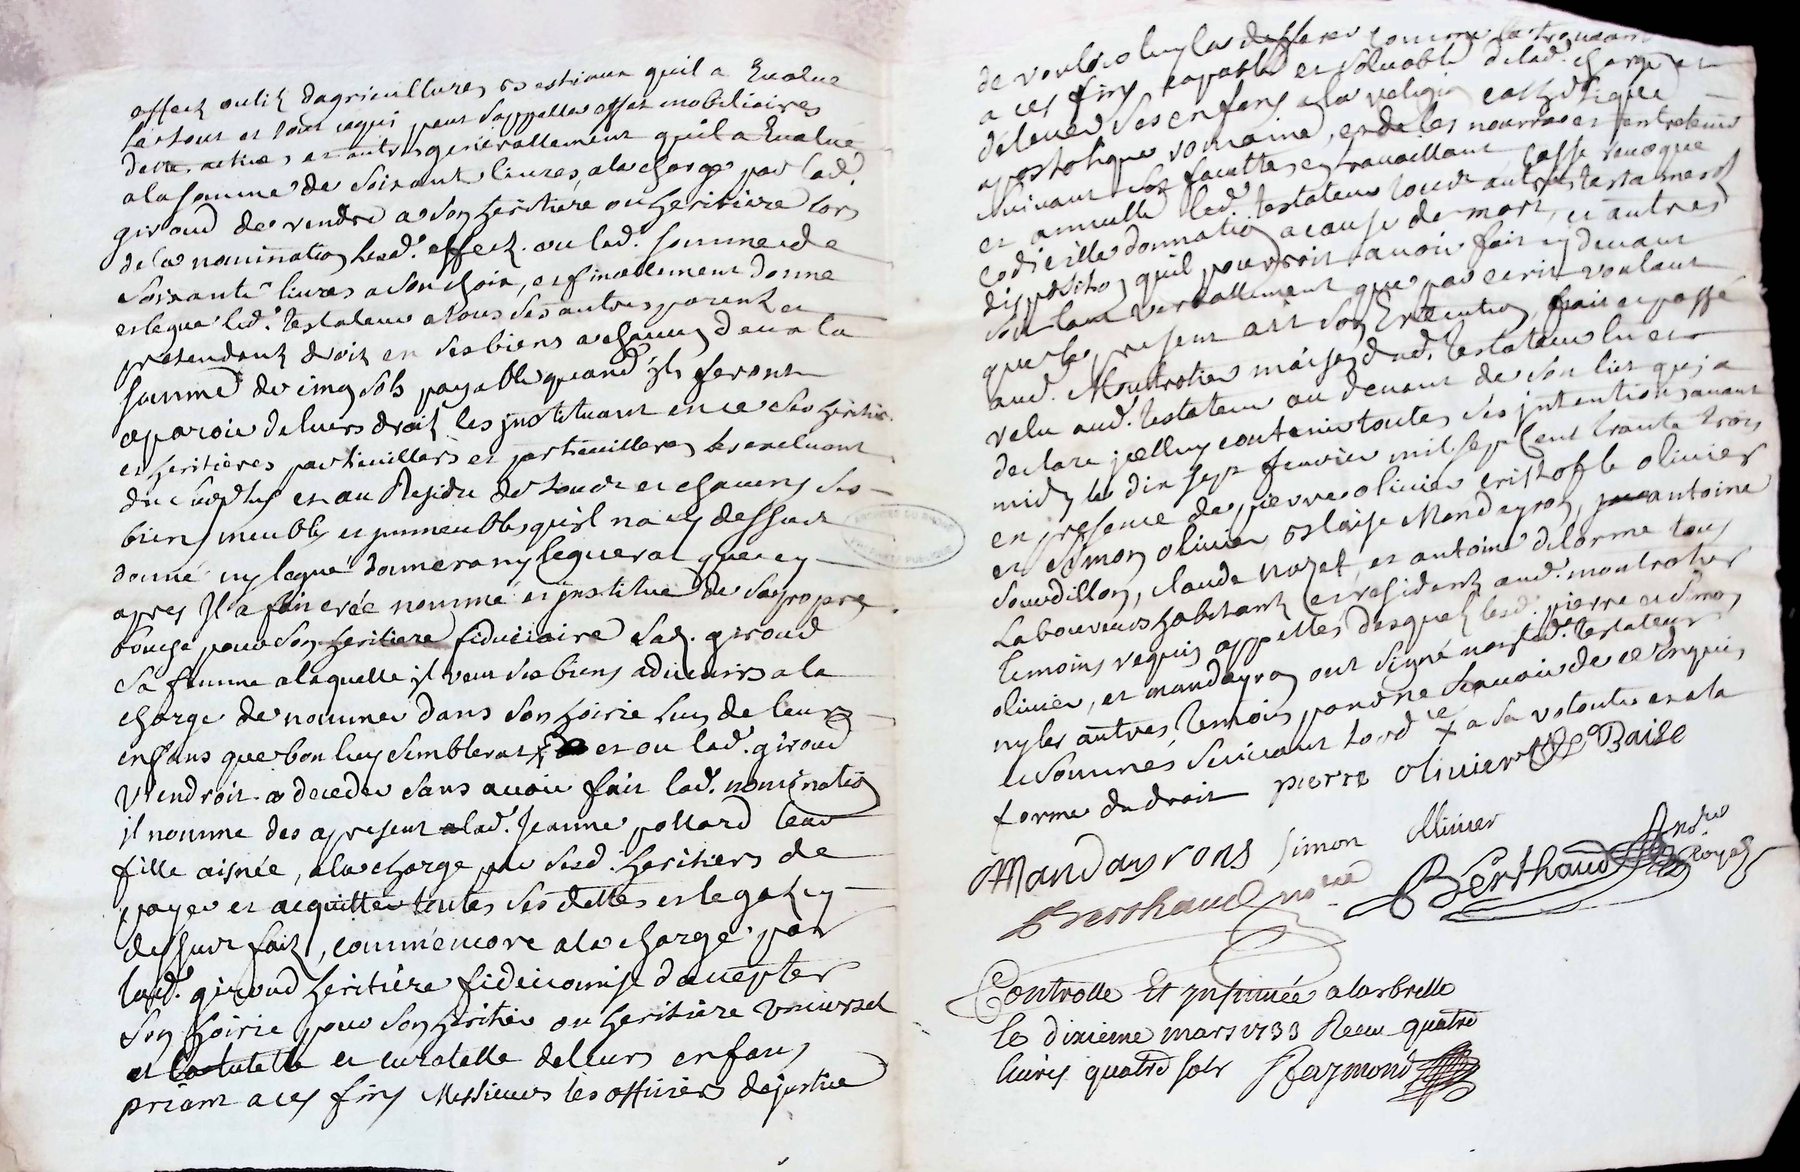 effect outils dagricultures bestiaux quil a Evalué
Le tout et tout ce qui peut sappeller effet mobiliaires
dette actives et autres generallement quil a Evalué
a la somme de soixante livres, a la charge par lad.
giroud de rendre a son heritiere ou heritiere lors
de la nomination lesd. effect ou lad. somme de
soixante livres a son choix, et finallement donne
et legue led. testateur a tous ses autres parents et
pretendants droit en ses biens a chacun deux la
somme de cinq sols payable quand jls feront
aparoir de leurs droit les jnstituant en ce ses heritiers
et heritieres particulliers et particullieres les excluant
du surplus et au Residu de tous et chacuns ses
biens meubles et jmmeubles quil na cy dessus
donné ny legué donnera ny leguerat que cy
apres Il a fait créé nommé et jnstitue de sa propre
bouche pour son heritiere fiduciaire lad. giroud
sa femme a laquelle jl veut ses biens advenirs a la
charge de nommer dans son hoirie lun de leurs
enfans que bon luy semblerat et ou lad. giroud
viendroit a deceder sans avoir fait lad. nomination
jl nomme des a present a lad. Jeanne pollard leur
fille aisnée, a la charge par sesd. heritiers de
payer et acquitter toutes ses dettes et legats cy
dessus faits, comme encore a la charge par
lad. giroud heritiere fideicomise daccepter
son hoirie pour son heritier ou heritiere universel
et la tutelle et curatelle de leurs enfans
priant a ces fins Messieurs les officiers de justice
de vouloir luy la defferer comme la trouvant
a ces fins capable et solvable de lad. charge et
délever ses enfans a la religion catholique
apostolique romaine, et de les nourrir et entretenir
suivant ses facultes en travaillant, casse revoque
et annulle led. testateur tous autres testaments
codicille donnation a cause de mort, et autres
disposition quil pourroit avoir fait cy devant
soit tant verballement que par ecrit voulant
que le present ait son Execution, fait et passé
aud. Montrotier maison dud. testateur lu et
relu aud. testateur au devant de son lict qui a
declare jcelluy contenir toutes ses jntentions avant
midy le dix sept fevrier mil sept cent trante trois
en presence de pierre olivier cristofle olivier
et Simon olivier, blaise Mandayron, antoine
Sourdillon, claude nozet, et antoine delorme tous
Laboureurs habitants et residents aud. montrotier
temoins requis appelles desquels lesd. pierre et Simon
olivier, et mandayron ont signé non led. testateur
ny les autres temoins pour ne scavoir de ce Enquis
et sommés suivant lord.ce x a sa volonté et a la
forme du droit pierre olivier x De Baise
Mandayrons simon ollivier
Berthaud no.re Berthaud No.re Royal
Controlle Et jnsinuée a larbrelle
le dixieme mars 1733 Receu quatre
livres quatre sols Raymond